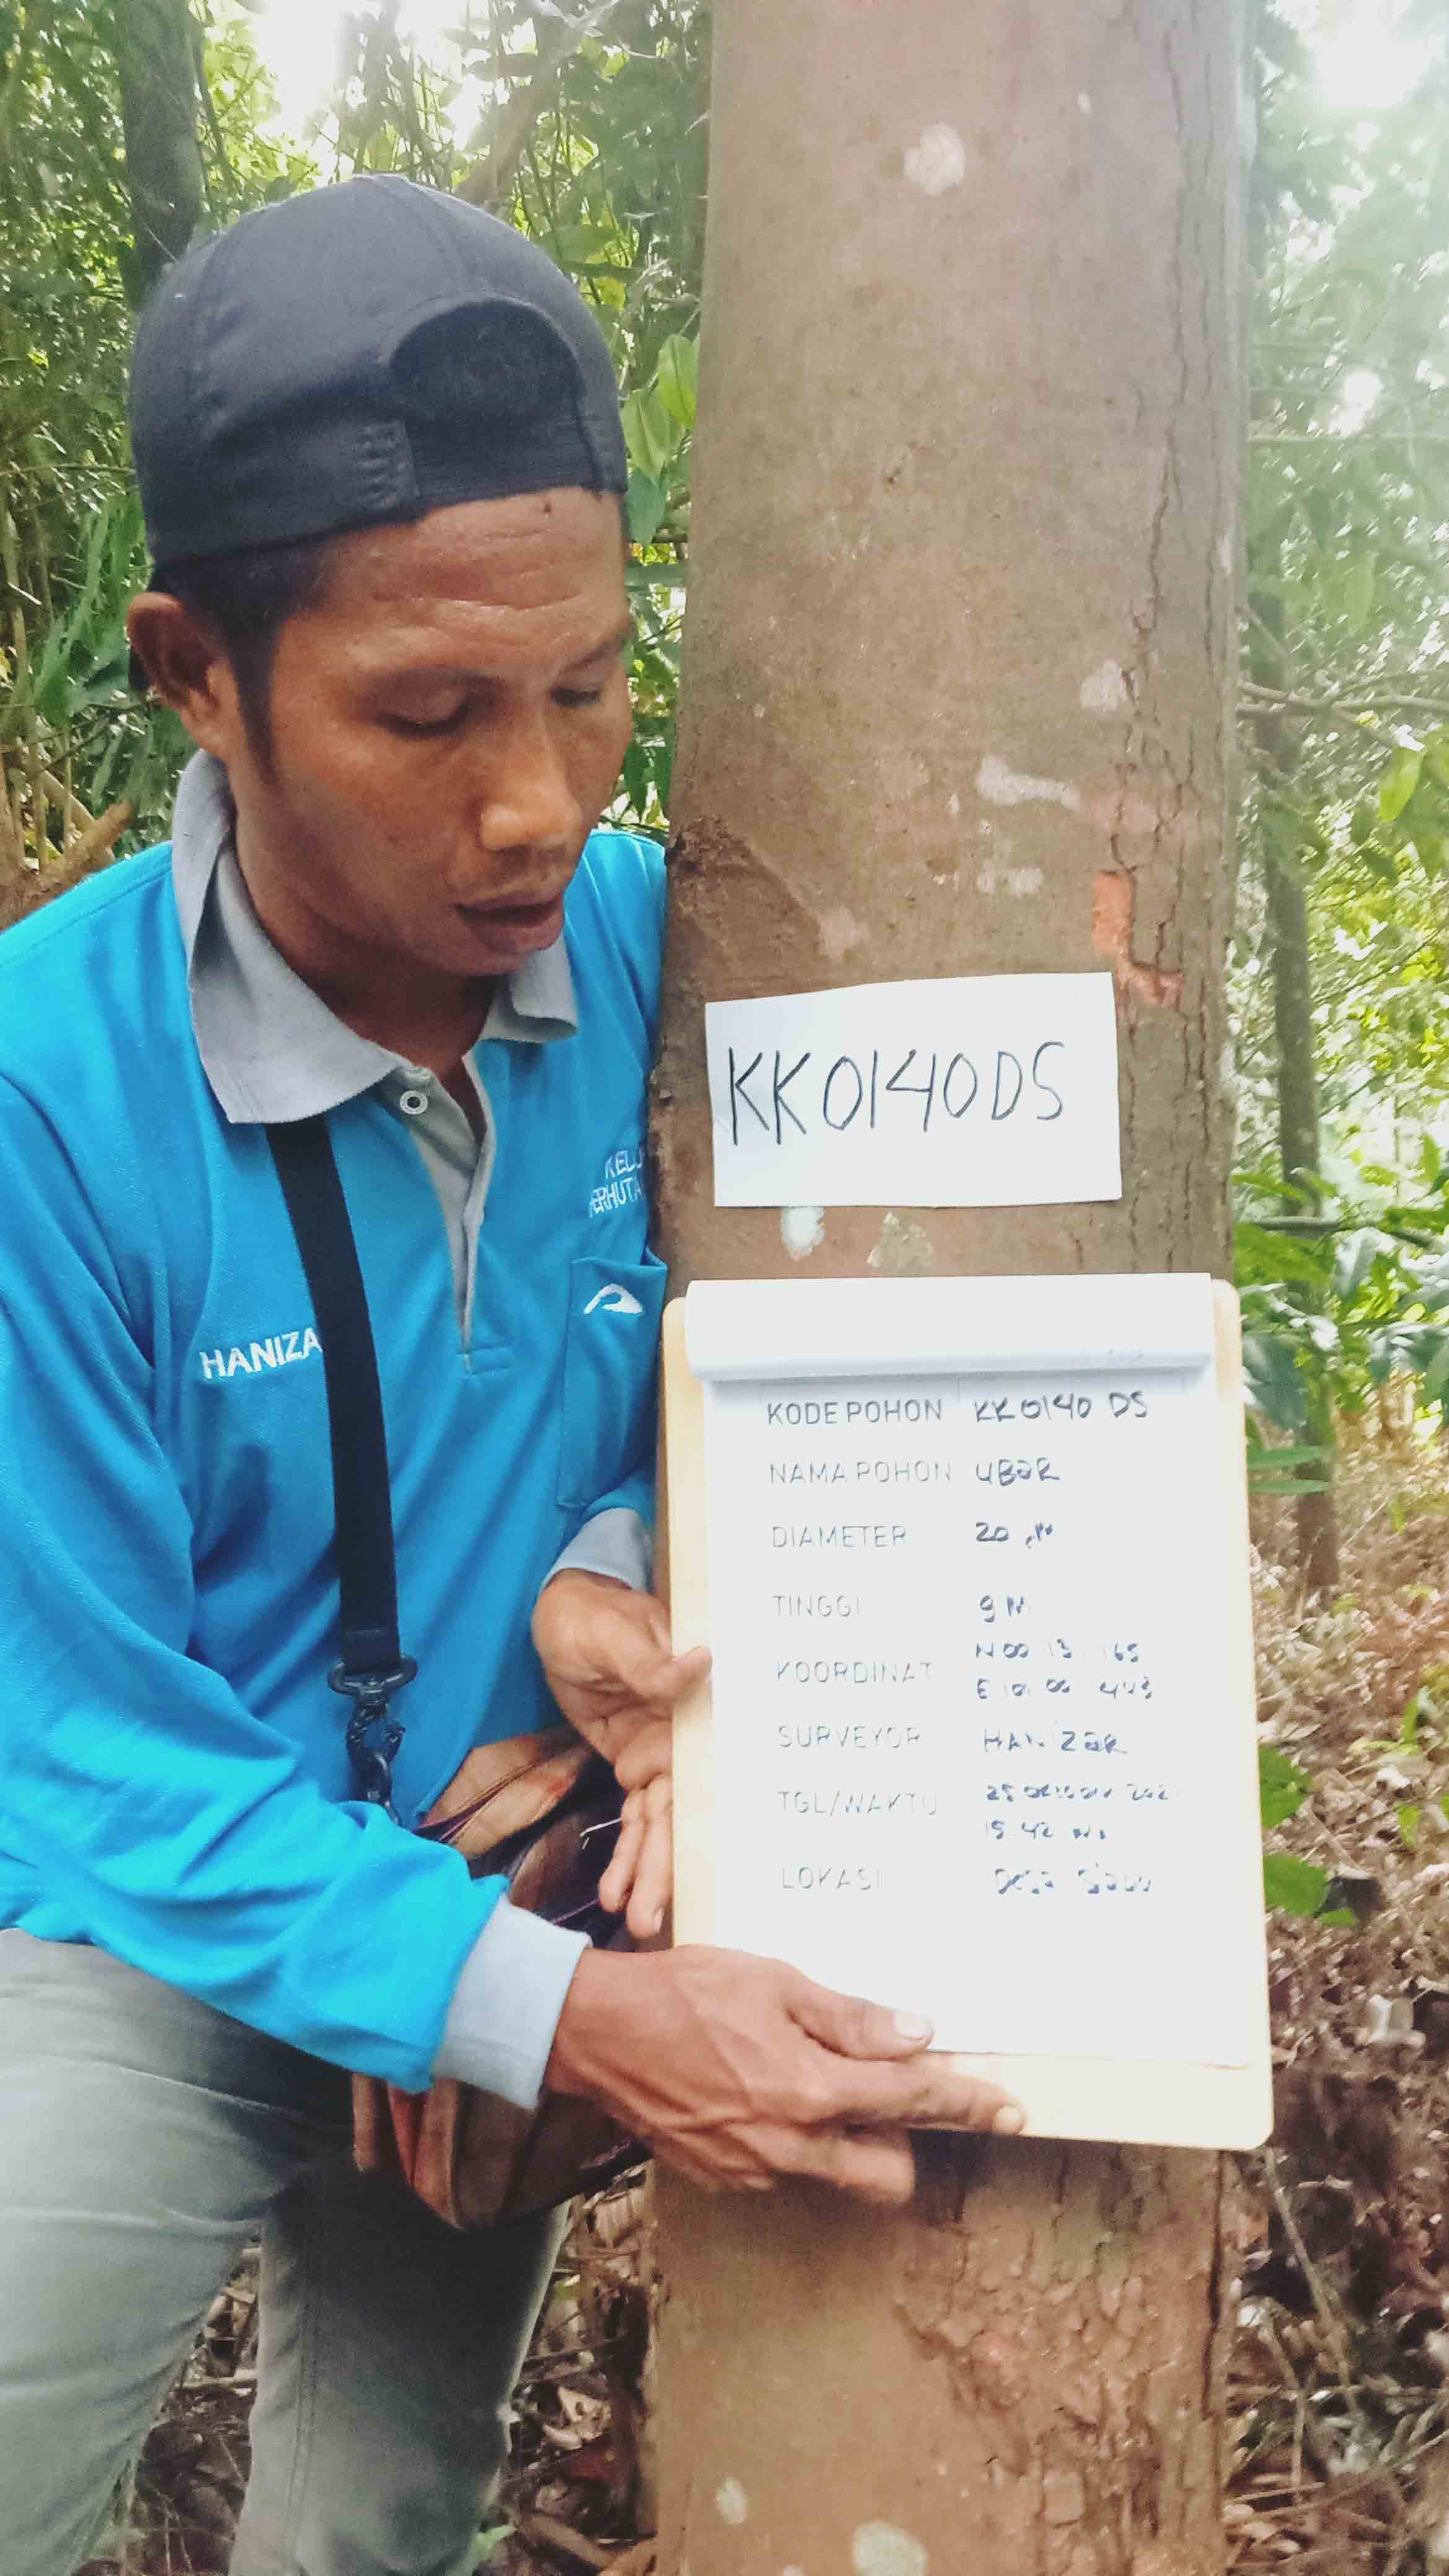 KK0140DS
KEL
ERHUTA
HANIZA
KODE POHON KK0140 DS
NAMA POHON UBAR
DIAMETER 20
TINGGI 9 M
KOORDINAT N 00 13 165
E 101 00 443
SURVEYOR HANIZAR
TGL/WAKTU 25 2021
15 42
LOKASI Desa